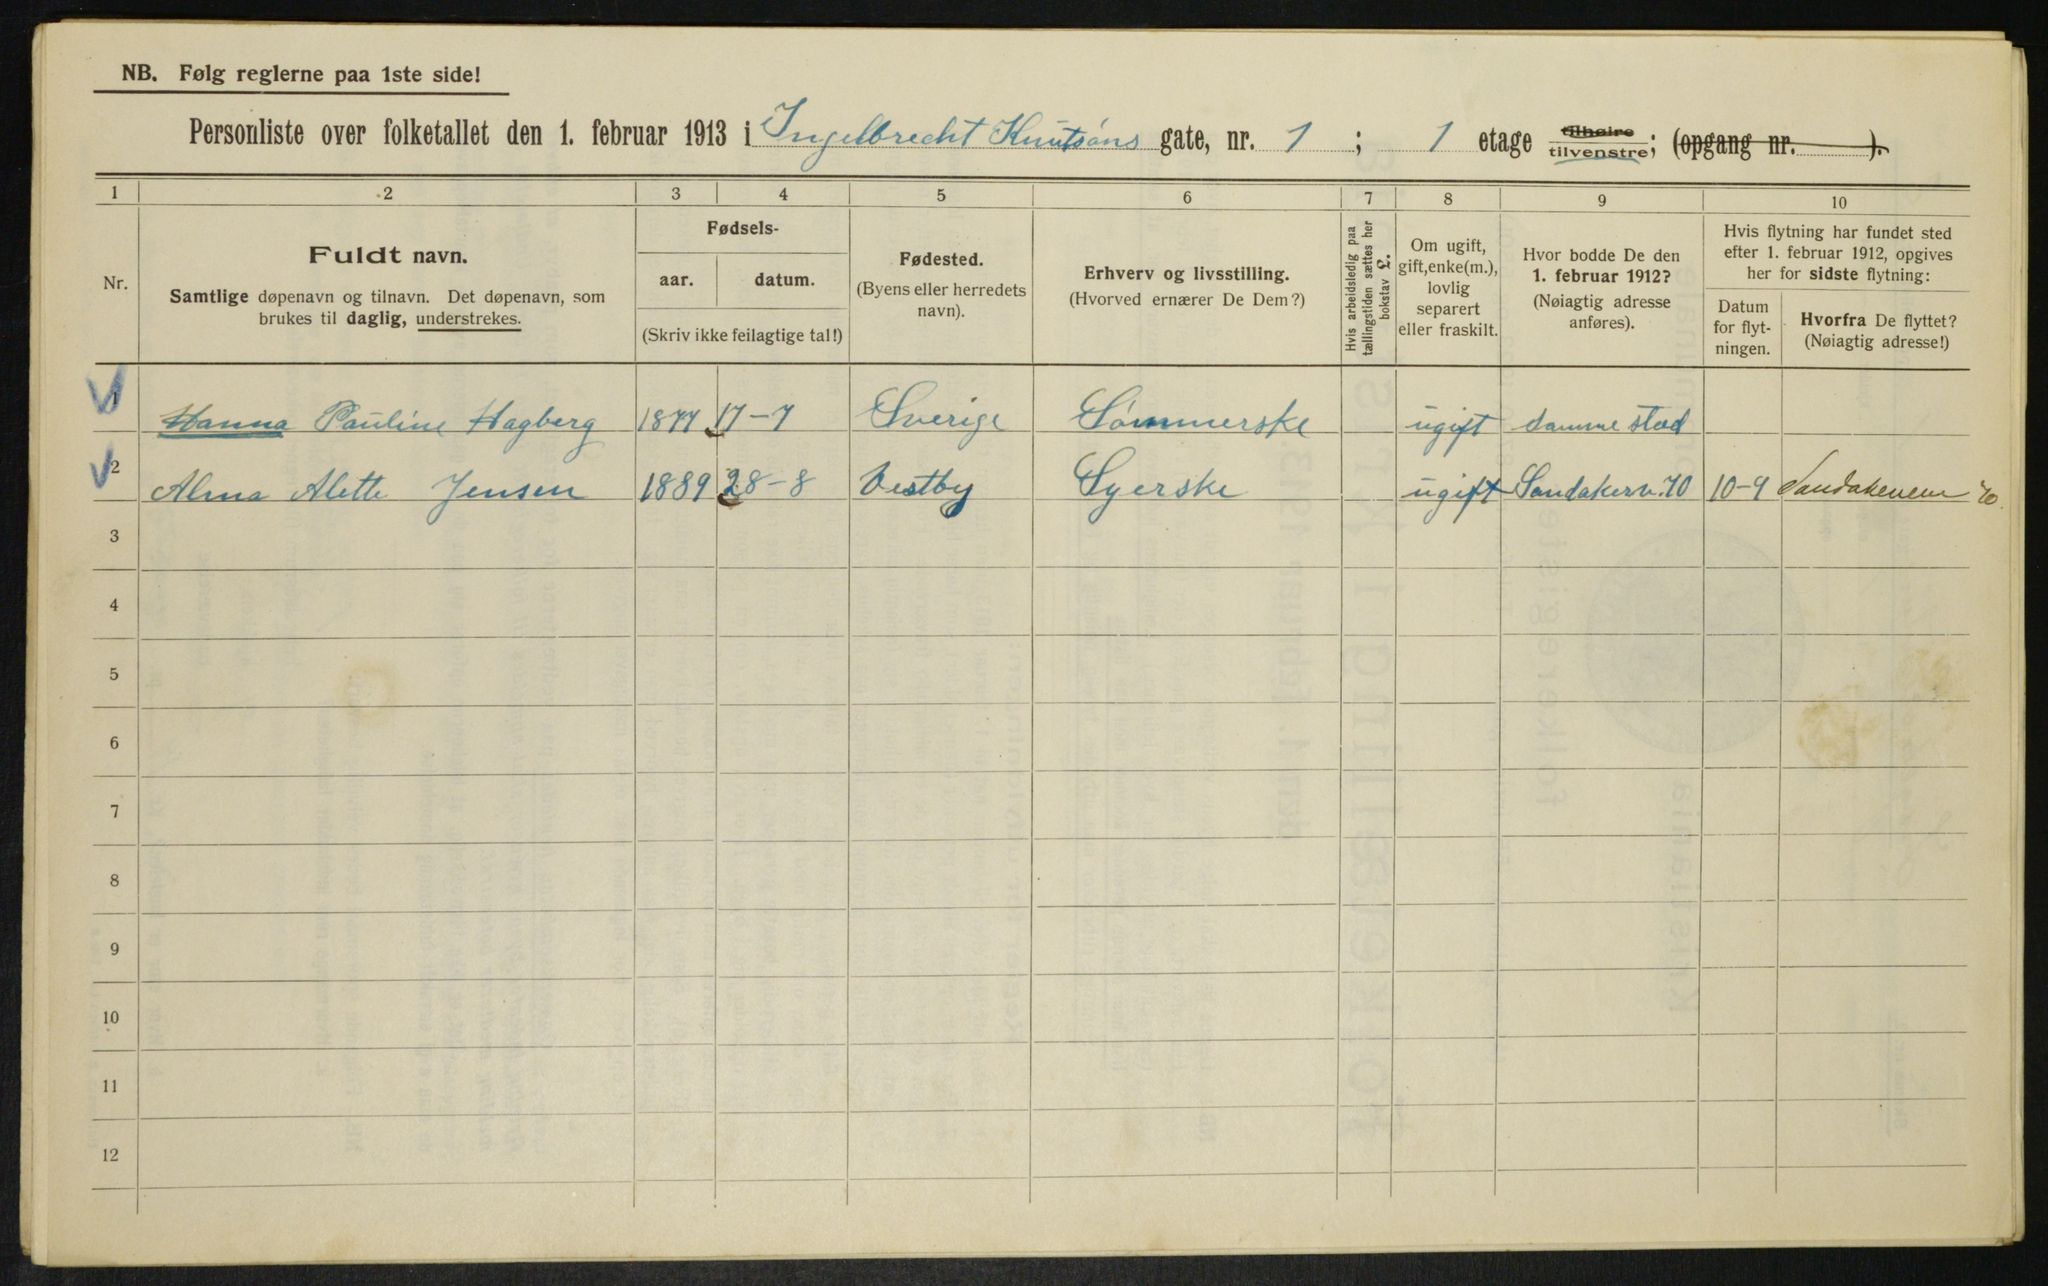 NB. Følg reglerne paa 1ste side!
Personliste over folketallet den 1. februar 1913 i Ingelbrecht Knutsóns gate, nr. 1 ; 1 etage tilhøire tilvenstre; (opgang nr. ).
1 2 3 4 5 6 7 8 9 10
Nr.
Fuldt navn.
Samtlige døpenavn og tilnavn. Det døpenavn, som
brukes til daglig, understrekes.
Fødsels-
aar. datum.
(Skriv ikke feilagtige tal!)
Fødested.
(Byens eller herredets
navn).
Erhverv og livsstilling.
(Hvorved ernærer De Dem?)
Hvis arbeidsledig paa
tællingstiden sættes her
bokstav £.
Om ugift,
gift, enke(m.),
lovlig
separert
eller fraskilt.
Hvor bodde De den
1. februar 1912?
(Nøiagtig adresse
anføres).
Hvis flytning har fundet sted
efter 1. februar 1912, opgives
her for sidste flytning:
Datum
for flyt-
ningen.
Hvorfra De flyttet?
(Nøiagtig adresse!)
1 Hanna Pauline Hagberg 1877 17-7 Sverige Sómmerske ugift samme sted
2 Alma Alette Jensen 1889 28-8 Vestby Syerske ugift Sandakerv. 70 10-9 Sandakerveien 70
3
4
5
6
7
8
9
10
11
12